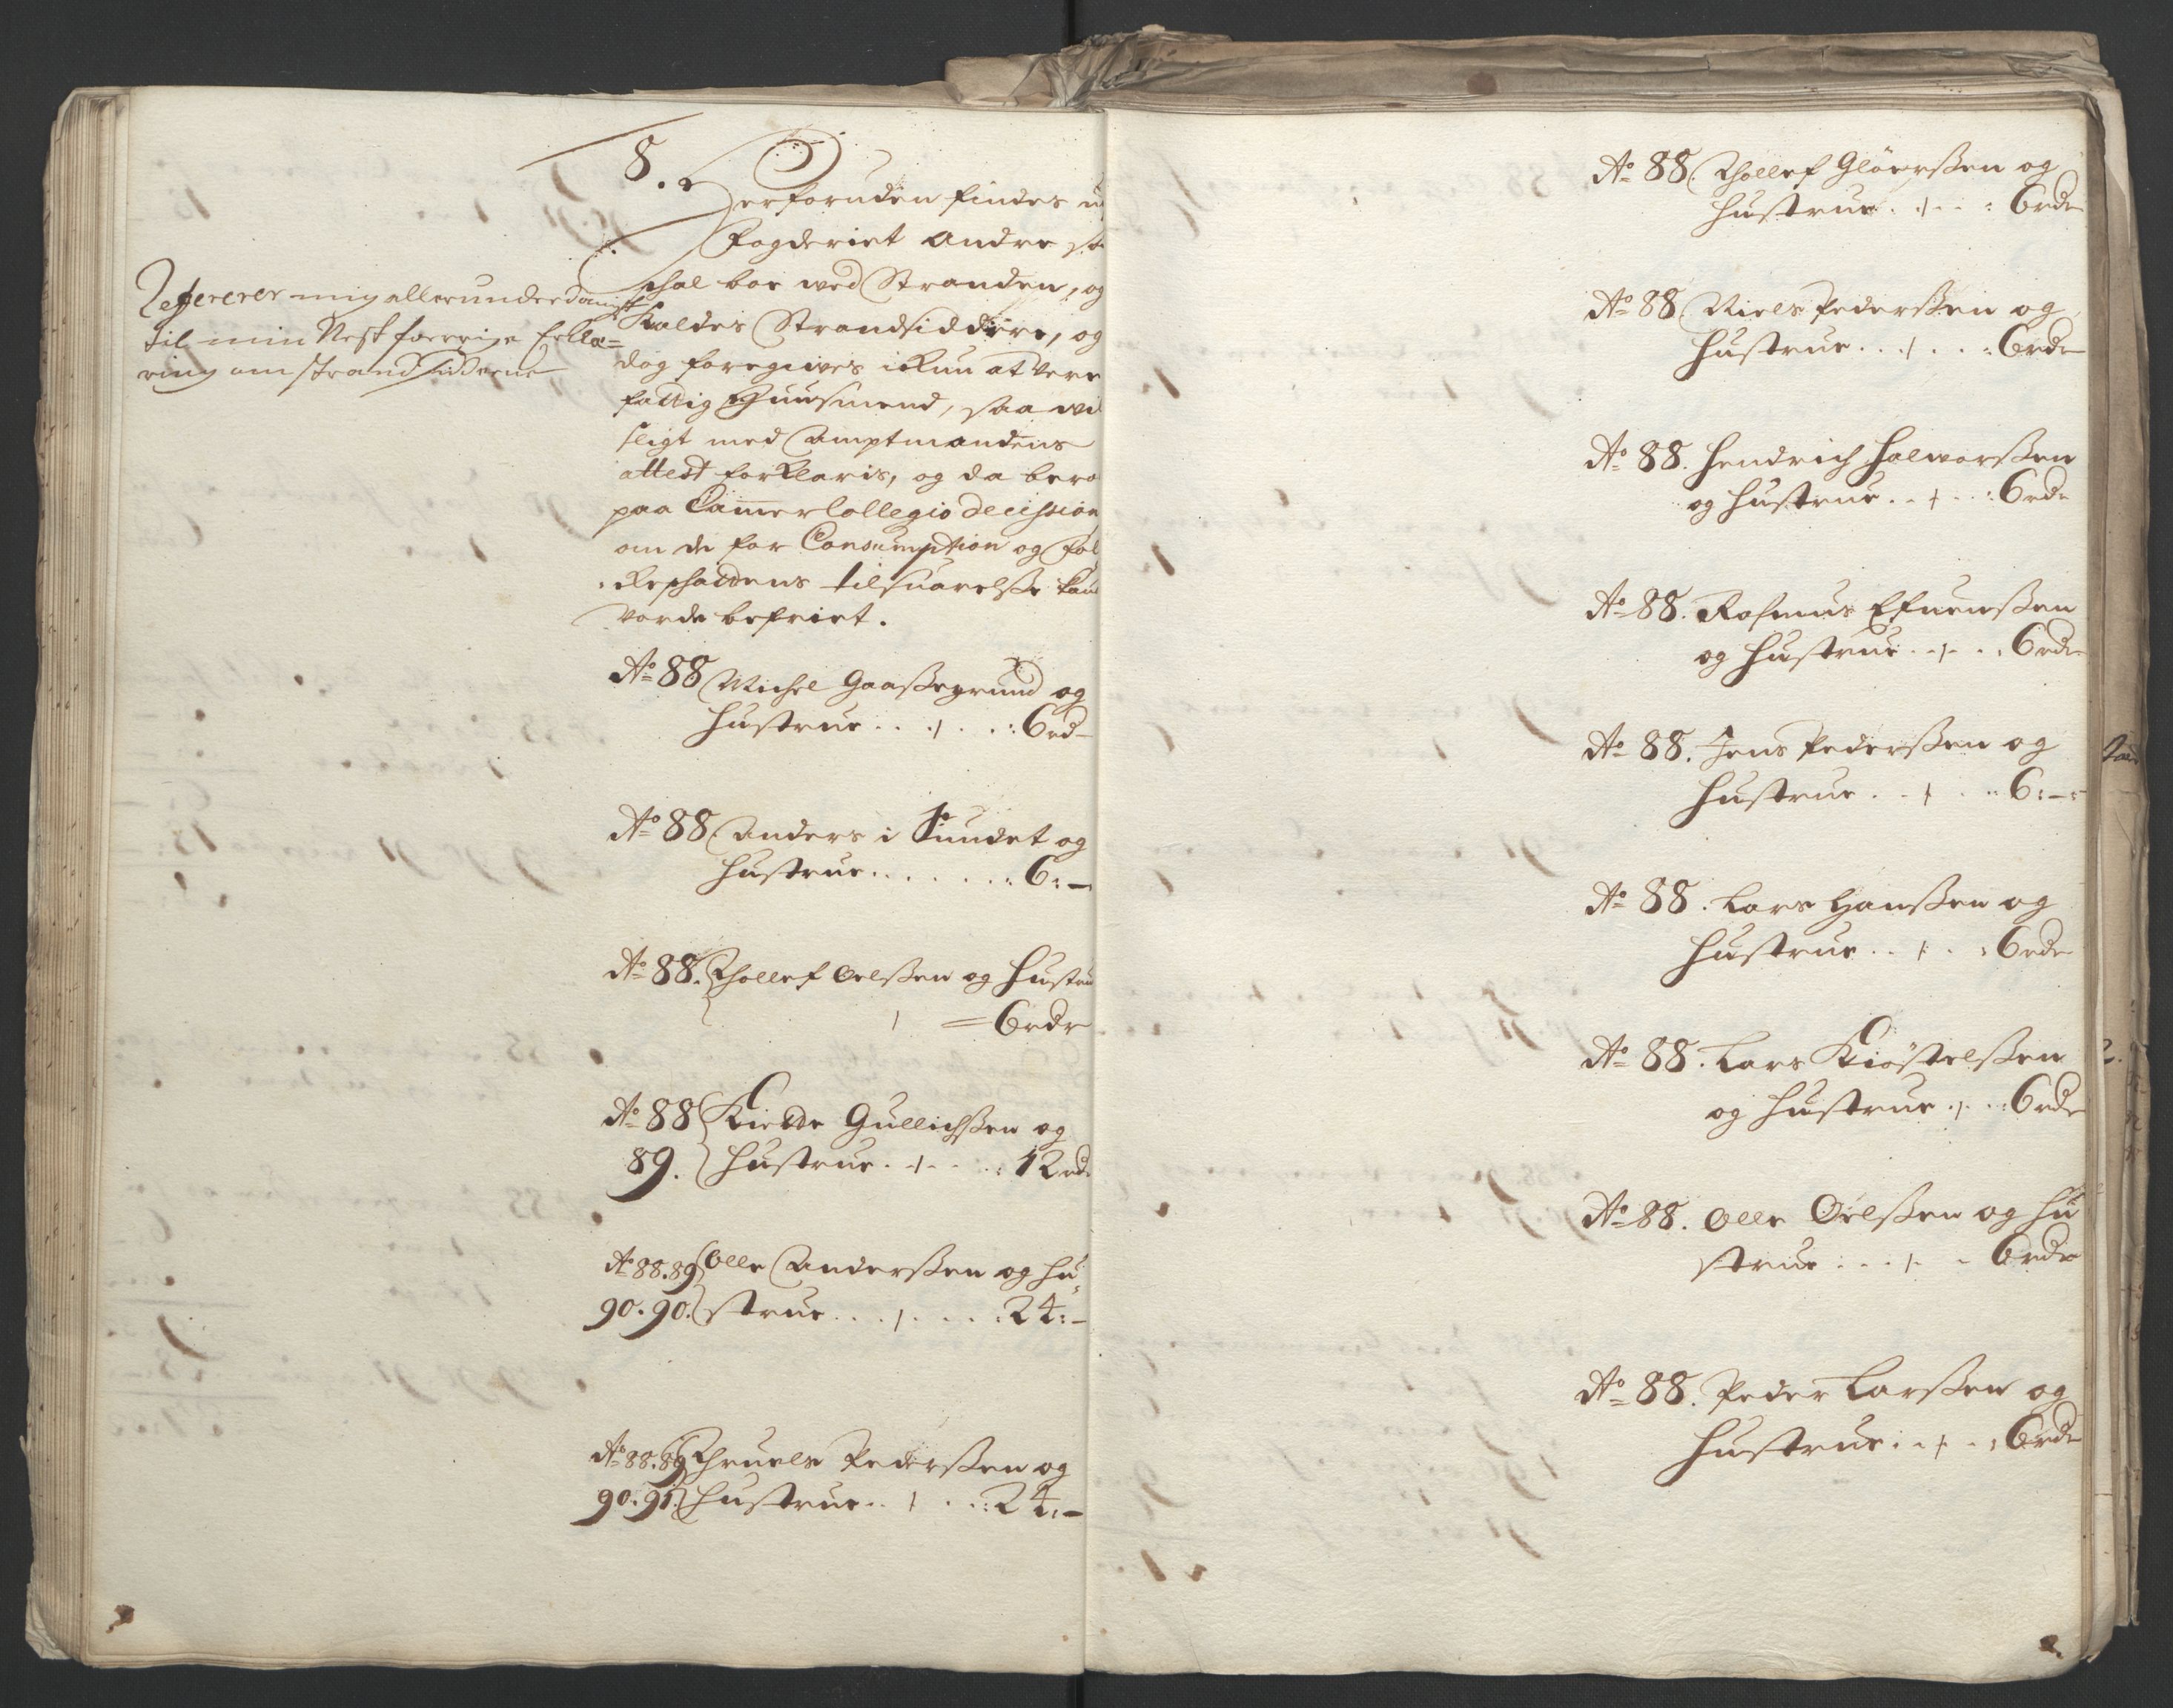 Refererer mig allerunderdanigst
til min Nest forrige Erklæ=
ring om strandsidderne
8.
Herforuden findes u
Fogderiet Andre so
schal boe wed Stranden, og
Kaldes Strandsiddere, og
dog foregiwes ickun at were
fattig Huusmend, saa wil
sligt med Amptmandens
attest forklaris, og da bero
paa Cammer Collegio decission
om de for Consumption og Fol
keschattens tilsuarelsse kan
worde befriet.
Ao 88 Michel Gaassegrund og
Hustrue . . 1 . . : 6 rd -
Ao 88 Anders i Sundet og
Hustrue . . . . . . : 6 : -
Ao 88. Thollef Oelssen og Hustru
1 = 6 rdr
Ao 88 Kiette Gullichssen og
89. Hustrue . 1 . . . : 12 rd
Ao 88. 89 Olle Anderssen og Hu
90. 90. strue . . . 1 . . . : 24 : -
Ao 88. 89 Thruels Pederssen og
90. 91. Hustrue . . 1 . . : 24 : -
Ao 88. Thollef Glöerssen og
Hustrue . 1 . . : 6 rdr
Ao 88 Niels Pederssen og
Hustrue . . . 1 . . : 6 rdr
Ao 88. Hendrich Halworssen
og Hustrue . . 1 . . : 6 rdr
Ao 88. Rasmus Efuenssen
og Hustrue . . 1 . . : 6 rdr
Ao 88. Jens Pederssen og
Hustrue . . 1 . . : 6 : - :
Ao 88. Lars Hanssen og
Hustrue . . 1 . . : 6 rdr
Ao 88. Lars Kiöstelssen
og Hustrue . 1 . . : 6 rdr
Ao 88. Olle Oelssen og Hu
strue : . . 1 . - 6 rdr
Ao 88. Peder Larssen og
Hustrue : . 1 . . : 6 rdr